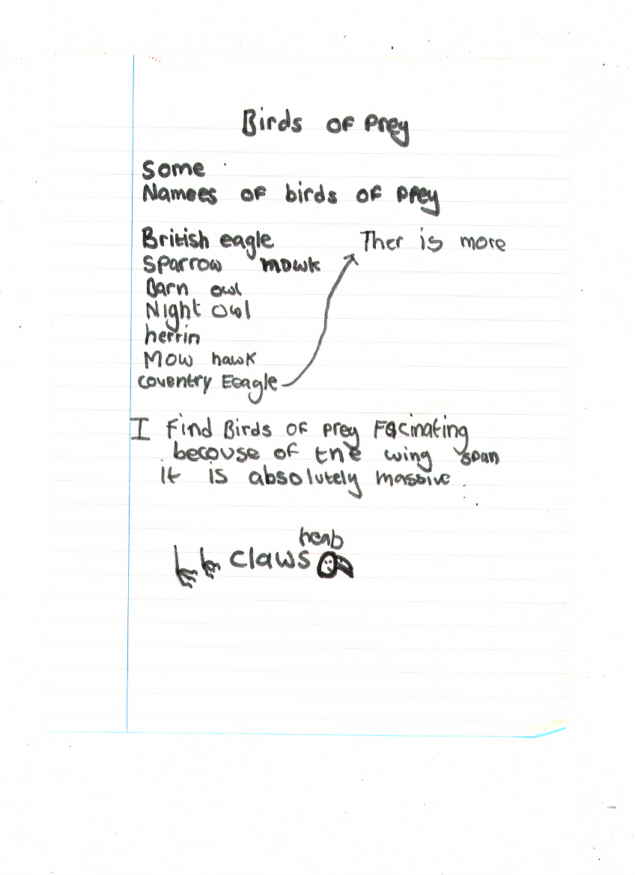 Birds of Prey
Some
Namees of birds of prey
British eagle
Ther is more
Sparrow mowk
Barn owl
Night Owl
herrin
Mow hawk
coventry Eeagle
I Find Birds of prey Facinating
becouse of the wing span
it is absolutely massive.
heab
claws